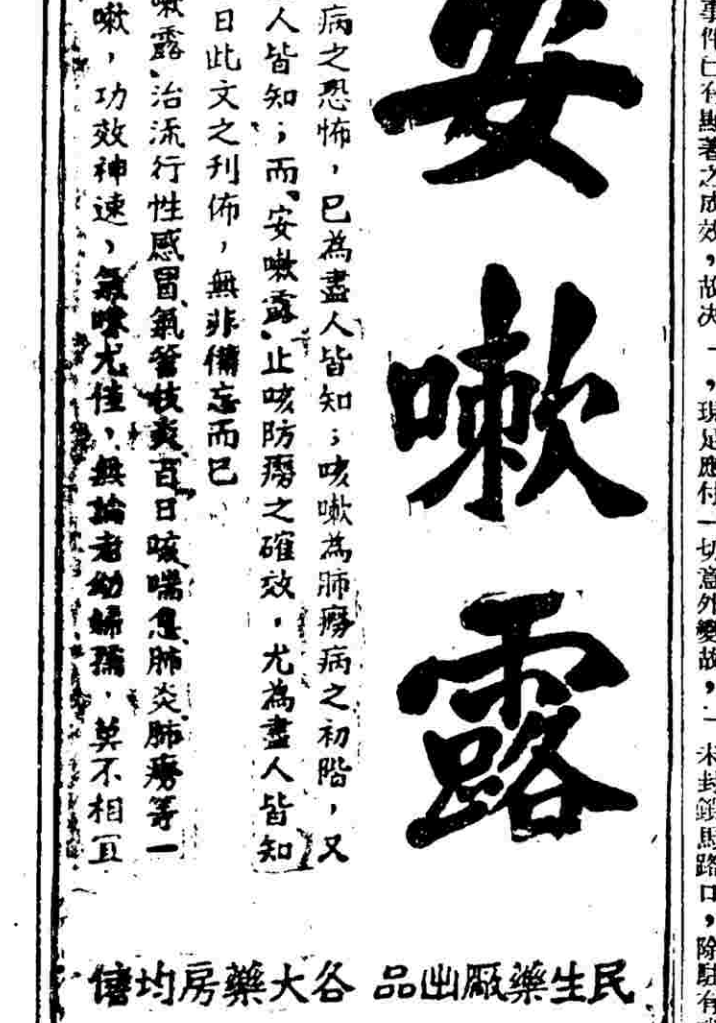 事件已有顯著之成效，故决一，現足應付一切意外變故，二未封鎖馬路口，除駐有
安嗽露
病之恐怖，已為盡人皆知；咳嗽為肺癆病之初階，又
人皆知；而、安嗽露、止咳防癆之確效，尤為盡人皆知
日此文之刊佈，無非備忘而已
嗽露、治流行性感冒氣管枝炎百日咳喘息肺炎肺癆等一
嗽，功效神速，氣味尤佳，無論老幼婦孺，莫不相宜
民生藥廠出品 各大藥房均售